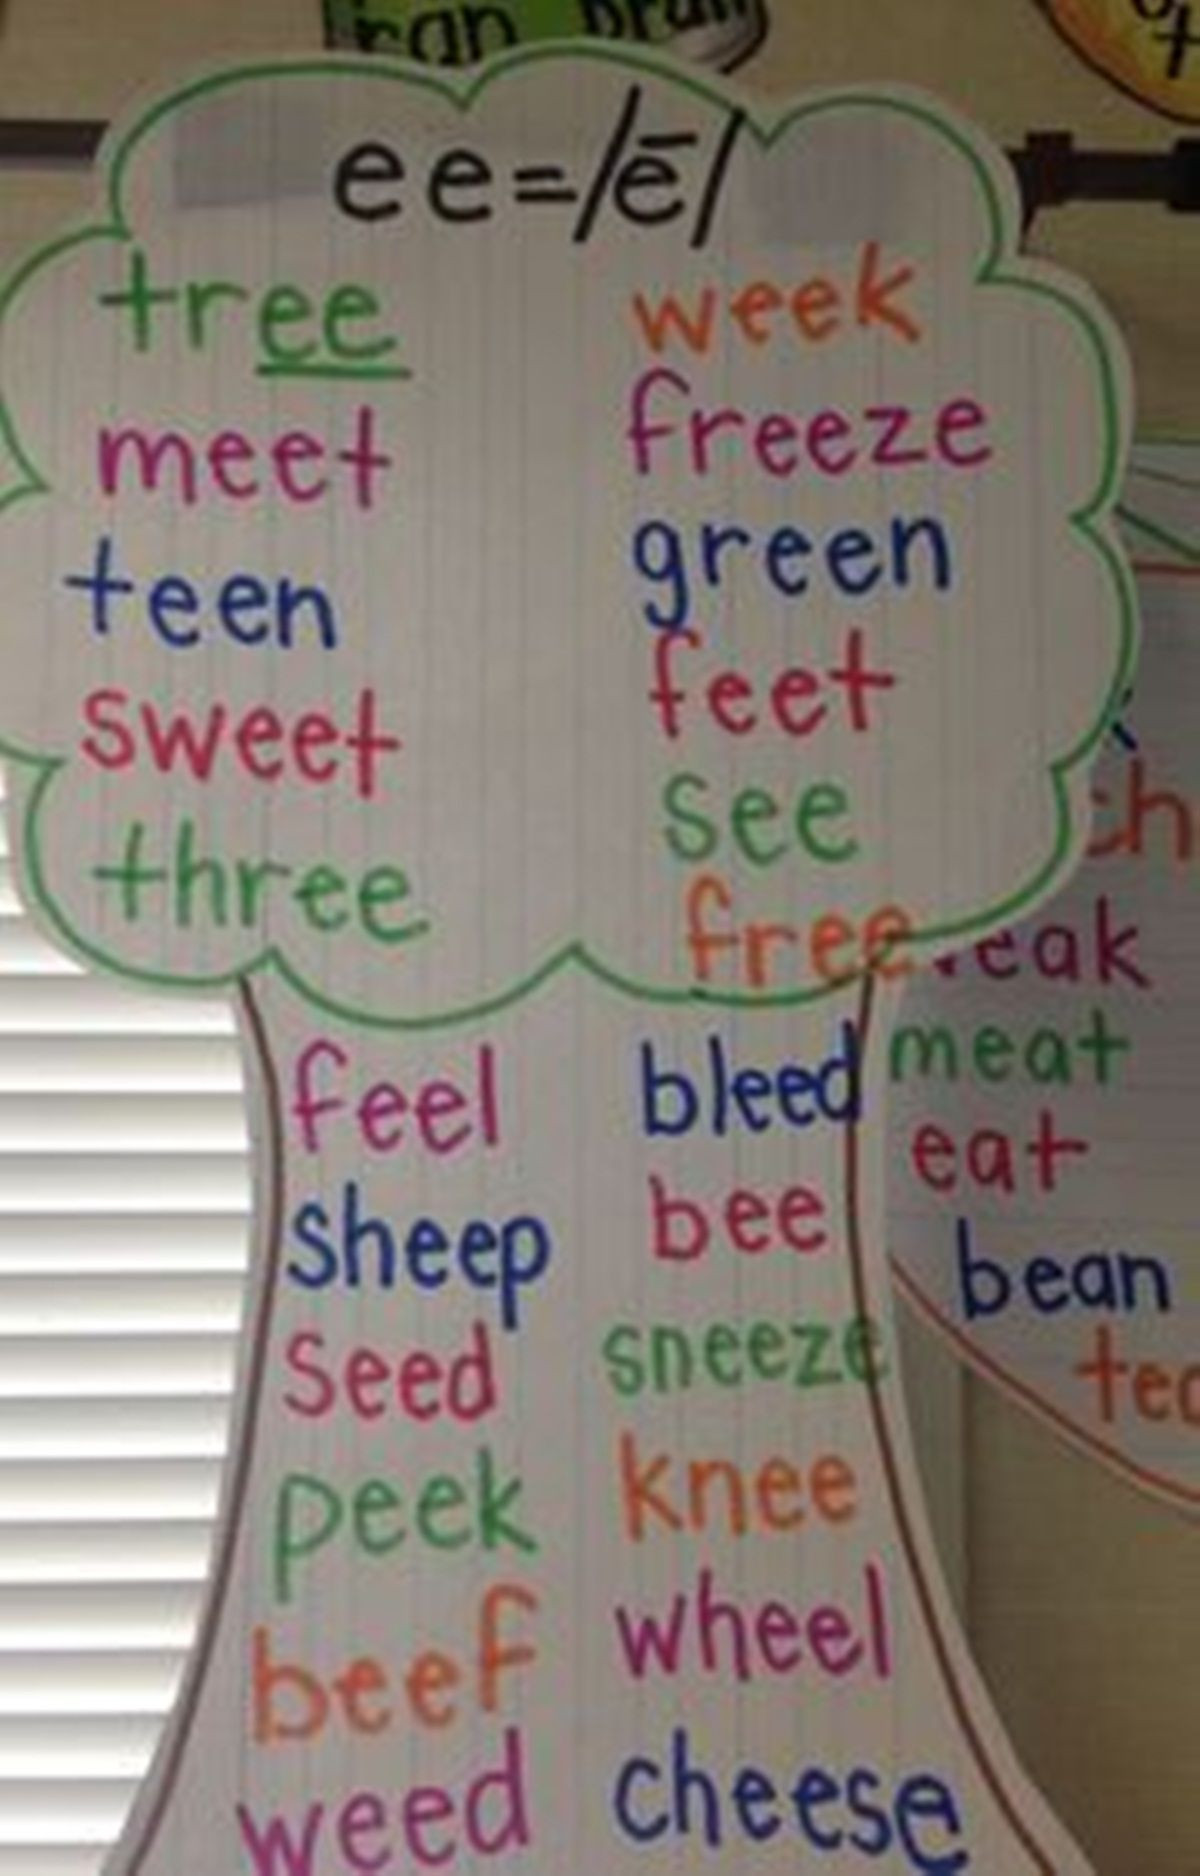 ran
ee=/ē/
tree week
meet freeze
teen green
sweet feet
three see
free
feel bleed
sheep bee
seed sneeze
peek knee
beef wheel
weed cheese
meat
eat
bean